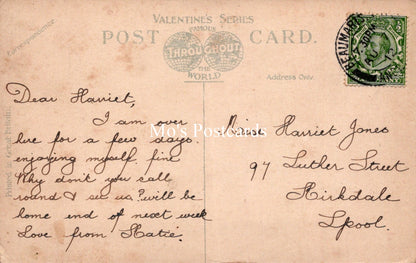 VALENTINES SERIES
FAMOUS
THROUGHOUT
THE
WORLD
POST CARD.
Correspondence
Address Only.
Printed in Great Britain.
BEAUMARIS
Dear Harriet,
I am over
here for a few days.
enjoying myself fine
Why don't you call
round & see us? will be
home end of next week
Love from Katie.
Miss Harriet Jones
97 Luther Street
Kirkdale
Lpool.
Mo's Postcards